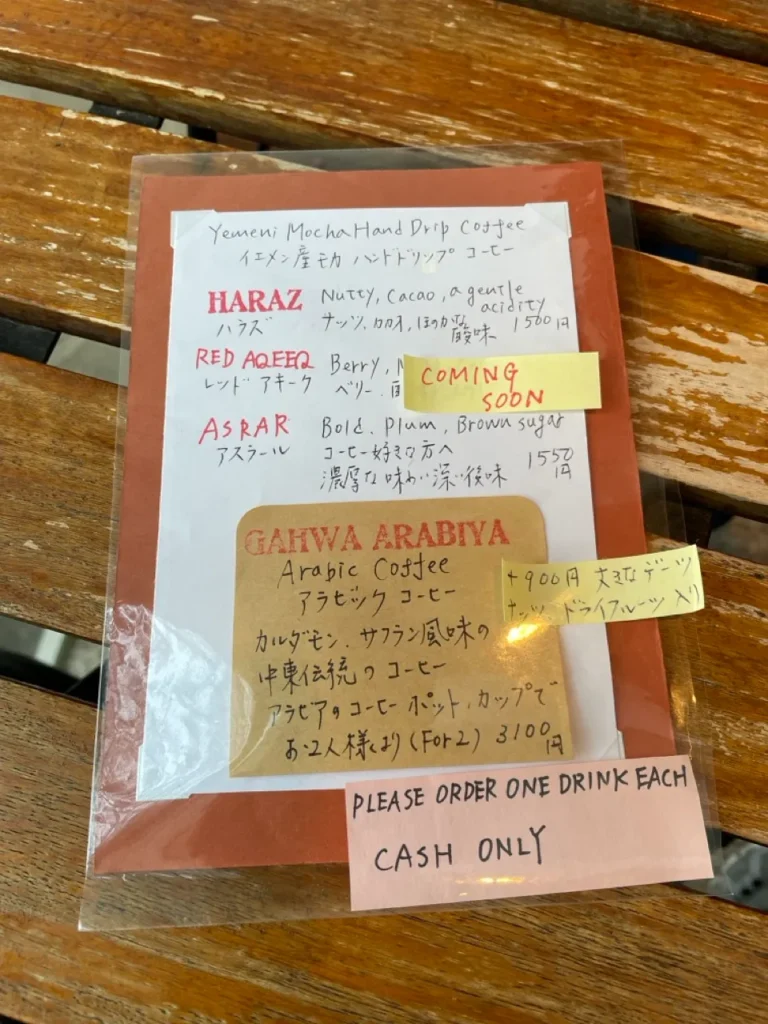 Yemeni Mocha Hand Drip Coffee
イエメン産モカ ハンドドリップ コーヒー
HARAZ Nutty, Cacao, a gentle acidity
ハラズ ナッツ、カカオ、ほのかな酸味 1500円
RED AQEEQ Berry,
レッド アキーク ベリー、
COMING
SOON
ASRAR Bold, Plum, Brown sugar
アスラール コーヒー好きな方へ 1550円
濃厚な味わい深い後味
GAHWA ARABIYA
Arabic Coffee
アラビック コーヒー
+900円 大きなデーツ
ナッツ、ドライフルーツ入り
カルダモン、サフラン風味の
中東伝統のコーヒー
アラビアのコーヒーポット、カップで
お2人様より (For 2) 3100円
PLEASE ORDER ONE DRINK EACH
CASH ONLY